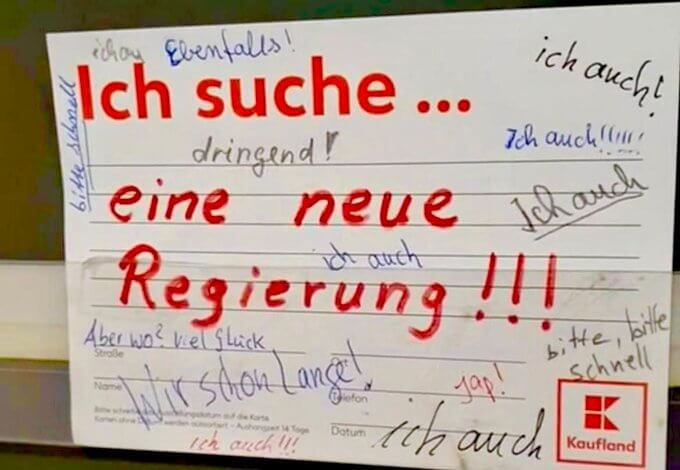 ich auch Ebenfalls!
ich auch!
bitte schnell
Ich suche ...
Ich auch!!!!!!
dringend!
eine neue
Ich auch
ich auch
Regierung!!!
Aber wo? viel Glück
bitte, bitte
schnell
Straße
Wir schon Lange!
Name
jap!
Telefon
Karten ohne Datum werden aussortiert – Aushangzeit 14 Tage
Datum
ich auch!!!
ich auch
Kaufland